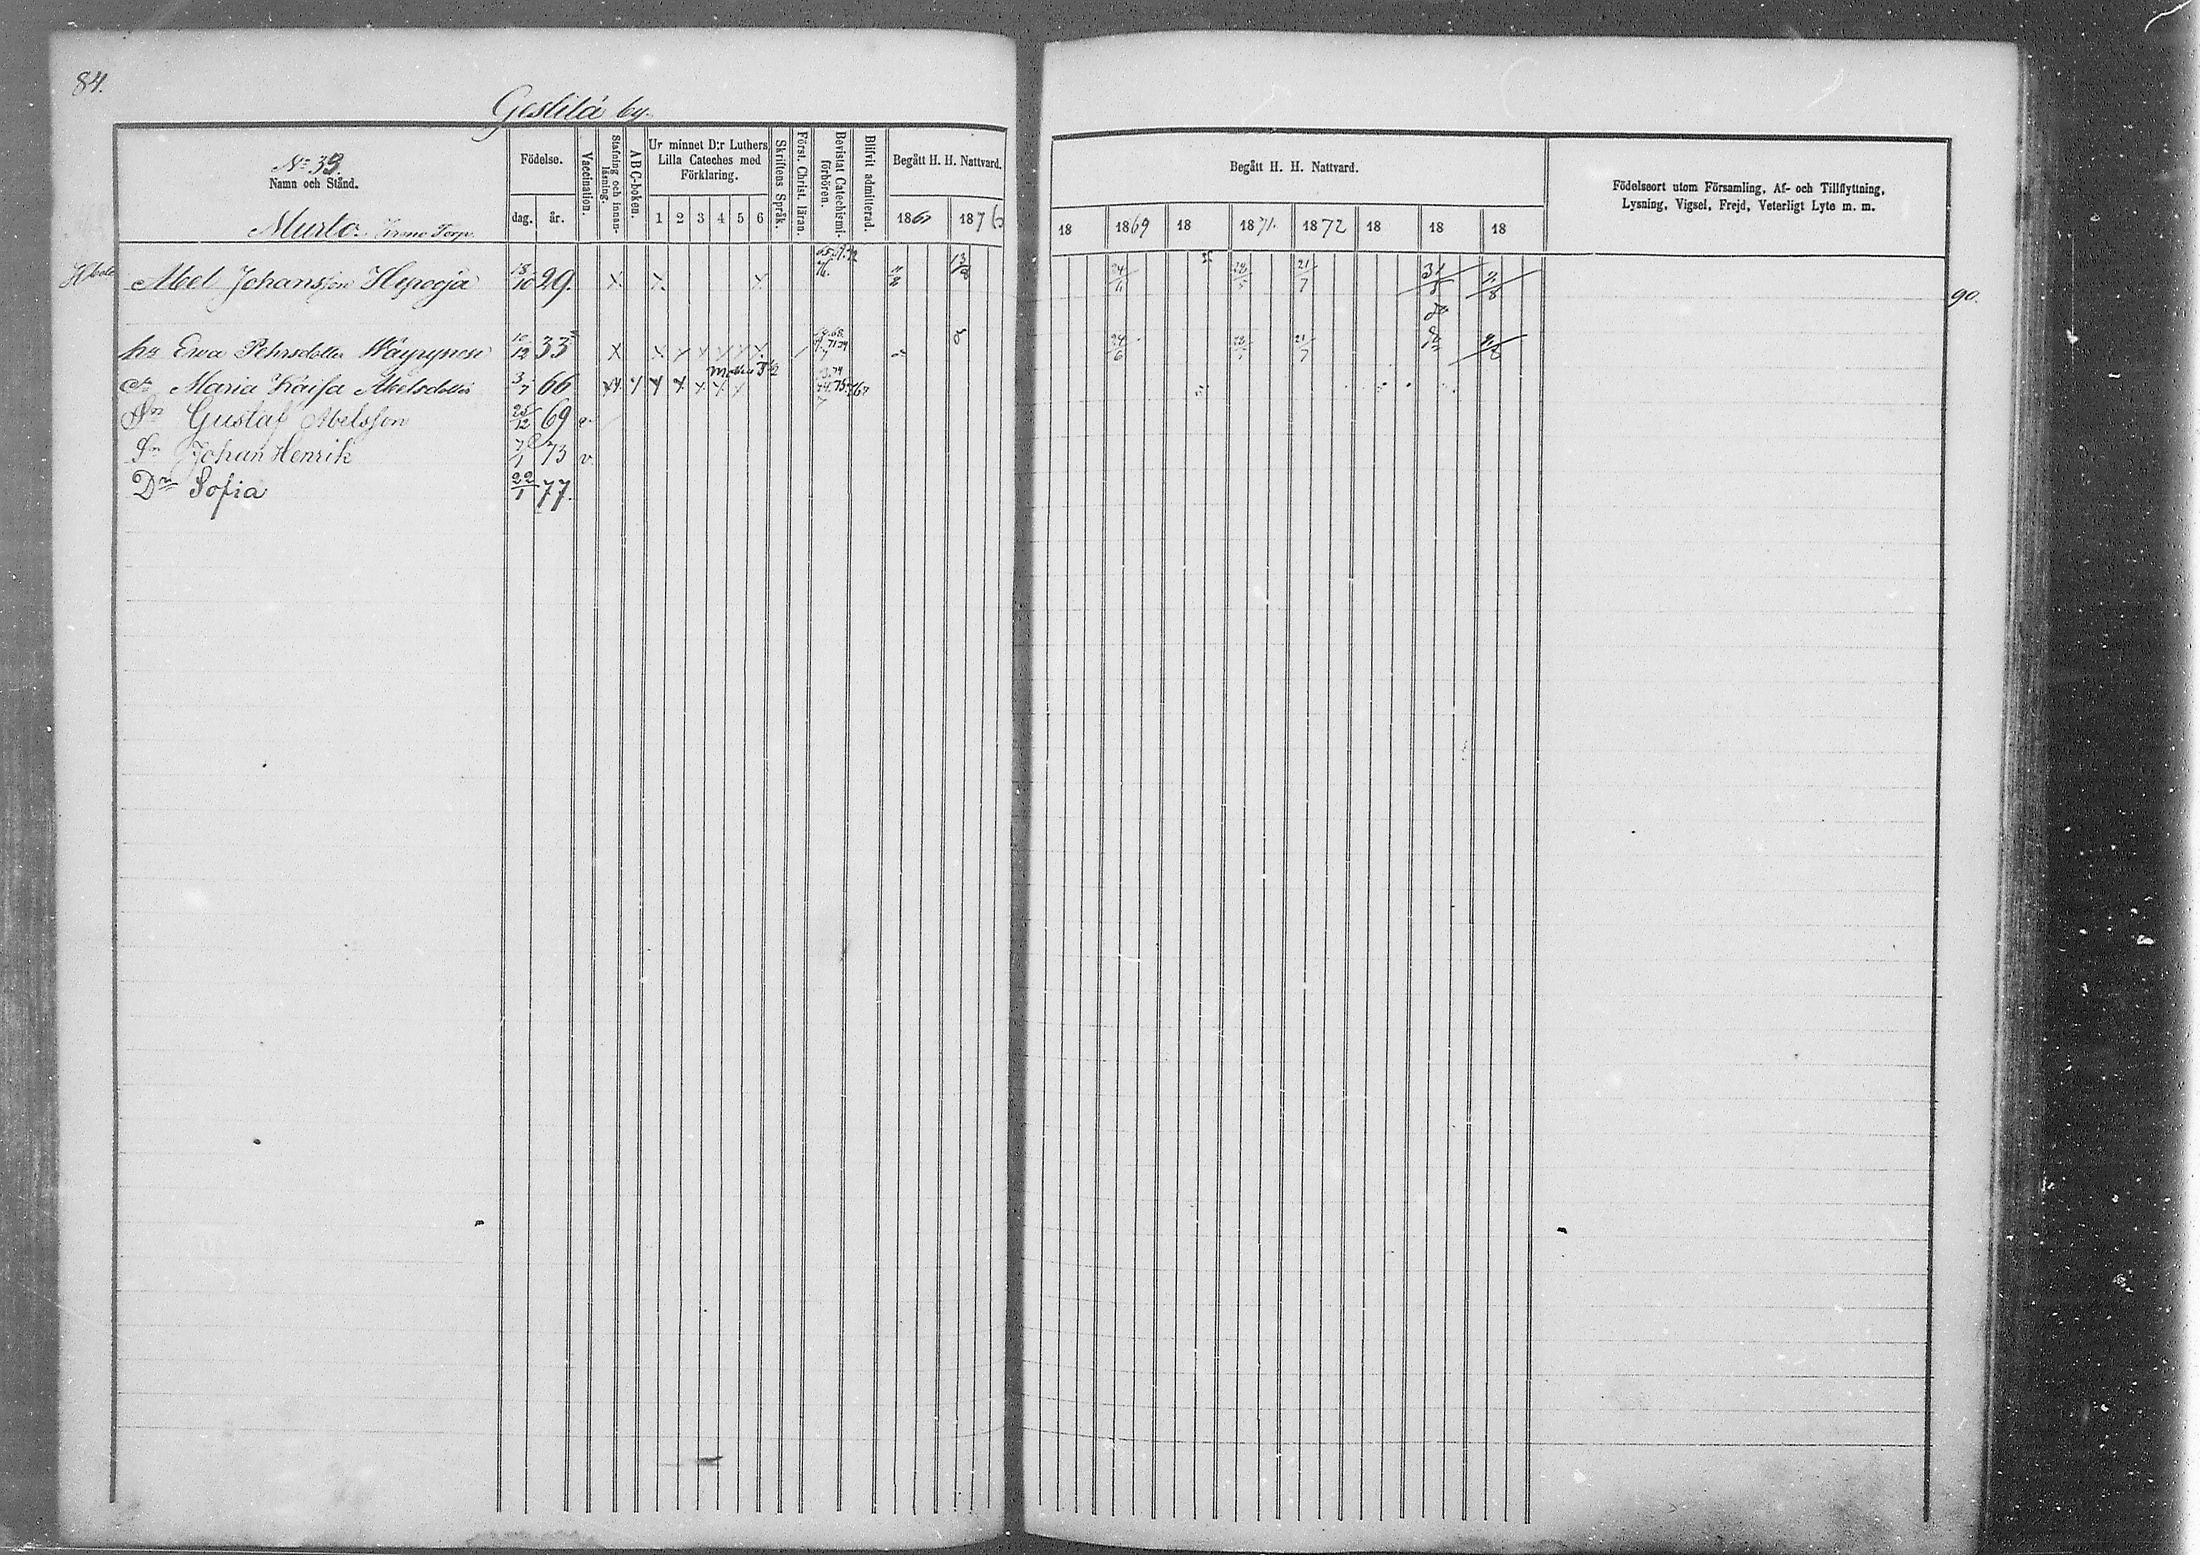 84.
Gestilä by.
No 39.
Namn och Stånd.
Murto Krono Torp.
Födelse.
dag. år.
Vaccination.
Stafning och innanläsning.
ABC-boken.
Ur minnet D:r Luthers Lilla Cateches med Förklaring.
1 2 3 4 5 6
Skriftens Språk.
Först. Christ. läran.
Bevistat Catechismiförhören.
Blifvit admitterad.
Begått H. H. Nattvard.
18 1876
Begått H. H. Nattvard.
18 1869 18 1871. 1872 18 18 18
Födelseort utom Församling, Af- och Tillflyttning,
Lysning, Vigsel, Frejd, Veterligt Lyte m. m.
Abel Johansson Hepooja 18/10 29. x x x 13/8 24/11 21/7 31/8 90.
hu Ewa Pehrsdotter Wäyrynen 10/12 33 x x x x x x x 24/6 21/7
Maria Kaisa Abelsdotter 3/7 66 x x x x x x
Sn Gustaf Abelsson 25/12 69
Sn Johan Henrik 73 v
Dr Sofia 22/1 77.